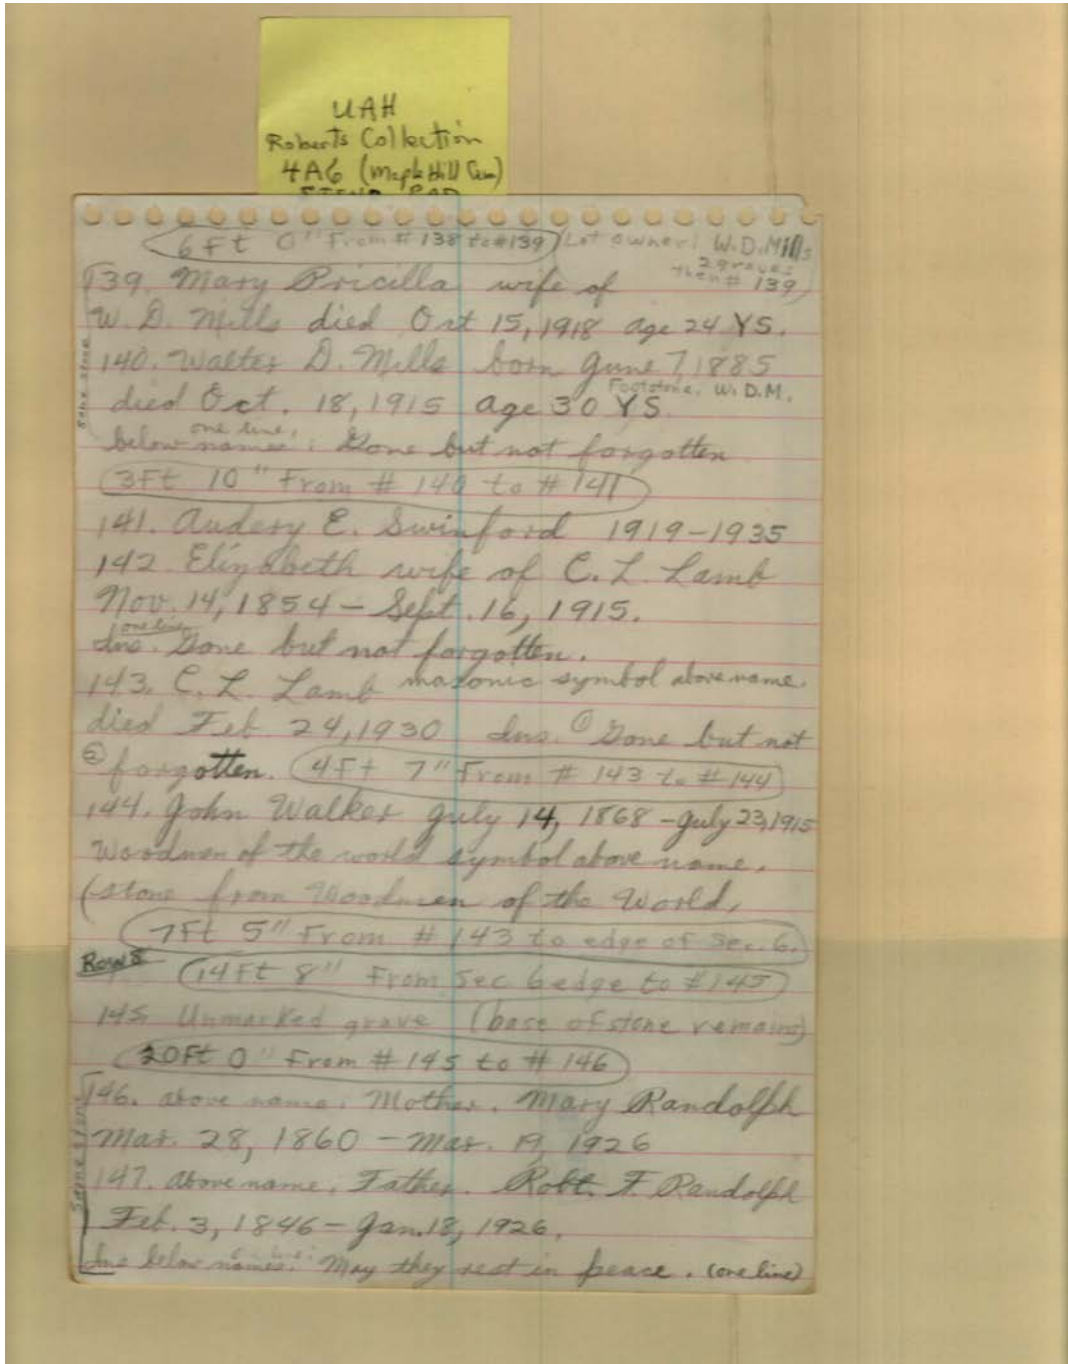 UAH
Roberts Collection
4A6 (Maple Hill Cem)
6 ft 0" From # 138 to #139 Lot owner: W.D. Mills
2 graves
then # 139
139. Mary Pricilla wife of
W. D. Mills died Oct 15, 1918 age 24 YS.
140. Walter D. Mills born June 7 1885
Footstone, W.D.M.
died Oct. 18, 1915 age 30 YS.
same stone
one line,
below names: Gone but not forgotten
3Ft 10" From # 140 to # 141
141. Audery E. Swinford 1919-1935
142 Elizabeth wife of C. L. Lamb
Nov. 14, 1854 - Sept. 16, 1915.
one line
Ins. Gone but not forgotten.
143. C. L. Lamb masonic symbol above name.
died Feb. 24, 1930 Ins. ① Gone but not
② forgotten. 4Ft 7" From # 143 to # 144
144. John Walker July 14, 1868 - July 23, 1915
Woodmen of the world symbol above name.
(stone from Woodmen of the World,
7Ft 5" From # 143 to edge of Sec. 6.
Row 8 14Ft 8" From Sec 6 edge to #145
145 Unmarked grave (base of stone remains)
20Ft 0" From # 145 to # 146
146. above name: Mother. Mary Randolph
Mar. 28, 1860 - Mar. 19, 1926
same stone
147. above name, Father. Robt. F. Randolph
Feb. 3, 1846 - Jan. 18, 1926.
Ins below names: May they rest in peace. (one line)